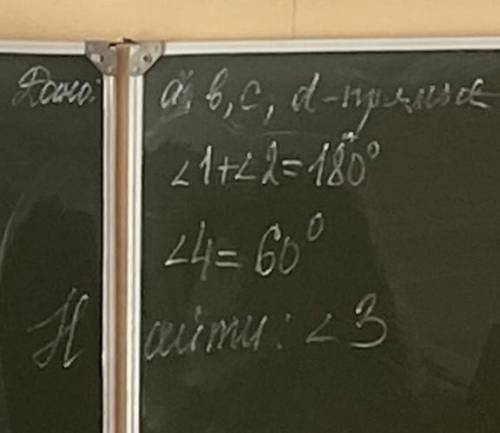 Дано: a, b, c, d - прямые
∠1+∠2=180°
∠4=60°
Найти: ∠3